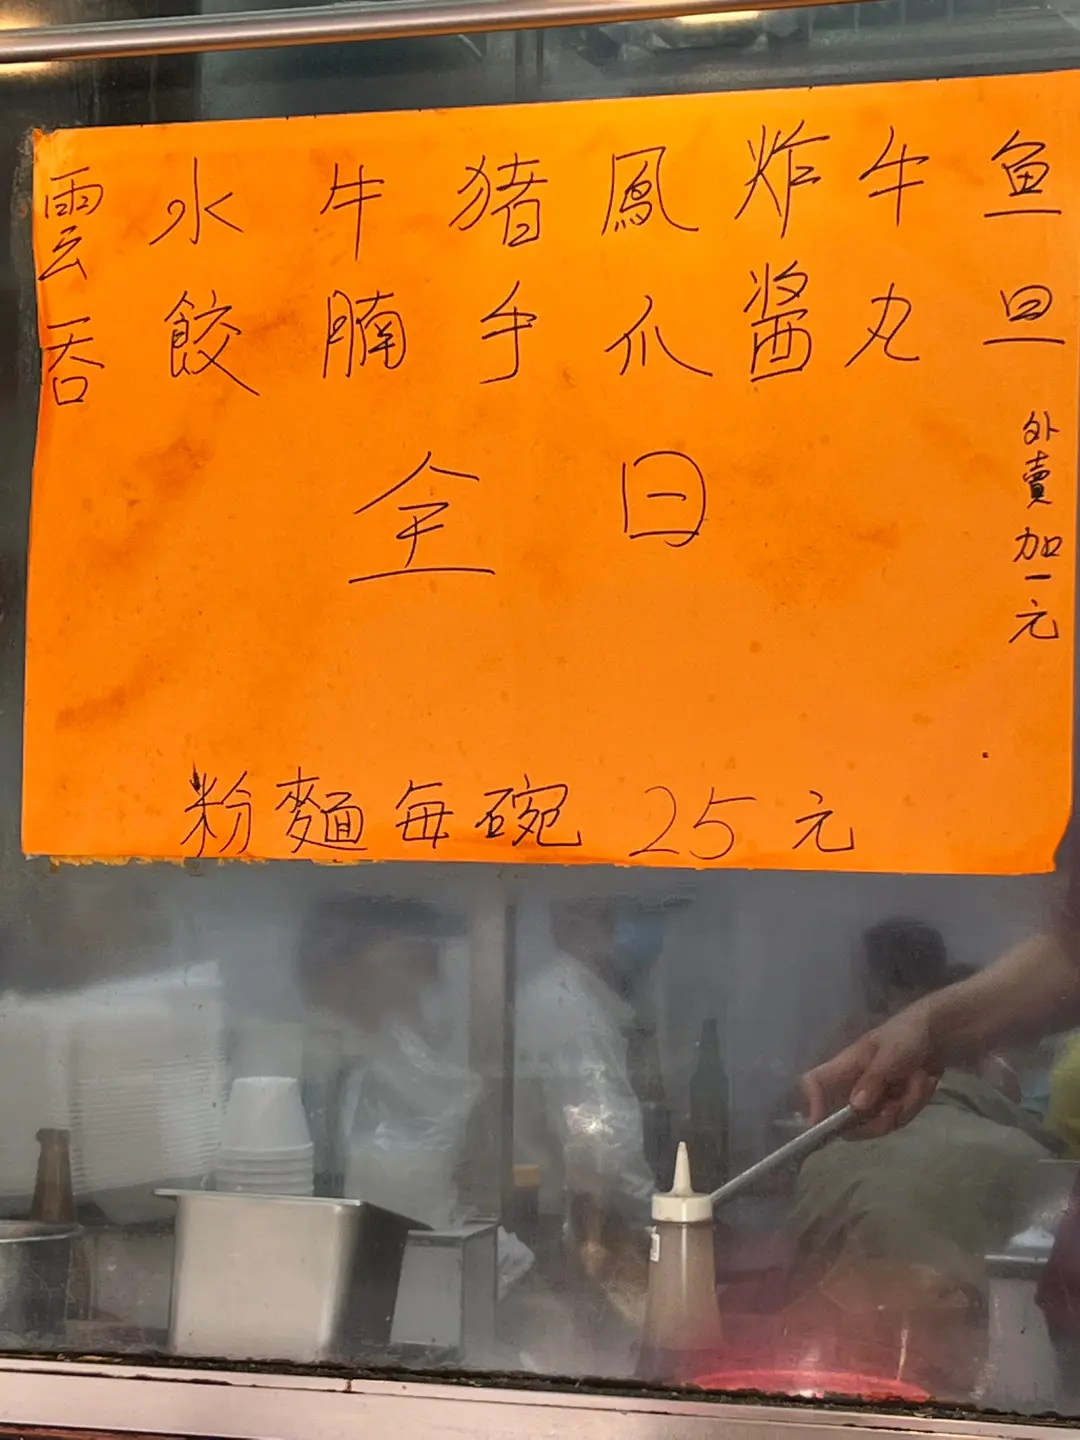 鱼旦
牛丸
炸酱
鳳爪
猪手
牛腩
水餃
雲吞
外賣加一元
全日
粉麵每碗 25元